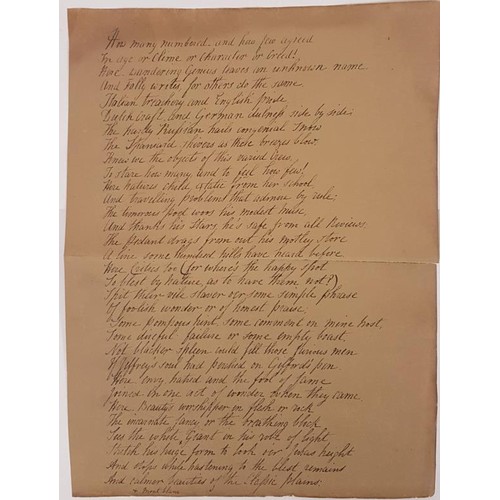 How many numbered and how few agreed
In age or clime or character or Creed!
Here wandering Genius leaves an unknown name
And Folly writes, for others do the same
Italian treachery and English pride
Dutch Craft, and German dulness side by side
The hardy Russian hails congenial Snow
The Spaniard shivers as these breezes blow
Knew we the objects of this varied Crew
To stare how many, and to feel how few!
Here Nature's child, from her school
And travelling problems that admire by rule
The timorous poet woos his modest Muse
And thanks his Stars, he's safe from all Reviews
The Pedant drags from out his motley Store
A line some hundred hills have heard before
Here Critics too (for where's the happy spot
So blest by nature, as to have them not?)
Spit their vile slaver o'er some simple phrase
Of foolish wonder or of honest praise
Some pompous hint, some comment on mine host
Some direful failure or some empty boast
Not blacker Spleen could fill those furious men
If Jeffrey's soul had perched on Gifford's pen
Here envy hatred and the fool of fame
Joined in one act of wonder when they came
Here Beauty's worshipper in flesh or rock
The incarnate fancy or the breathing block
Sees the white Giant in his robe of light
Stretch his huge form to look o'er Jura's height
And stops while hastening to the blest remains
And calmer beauties of the Classic plains